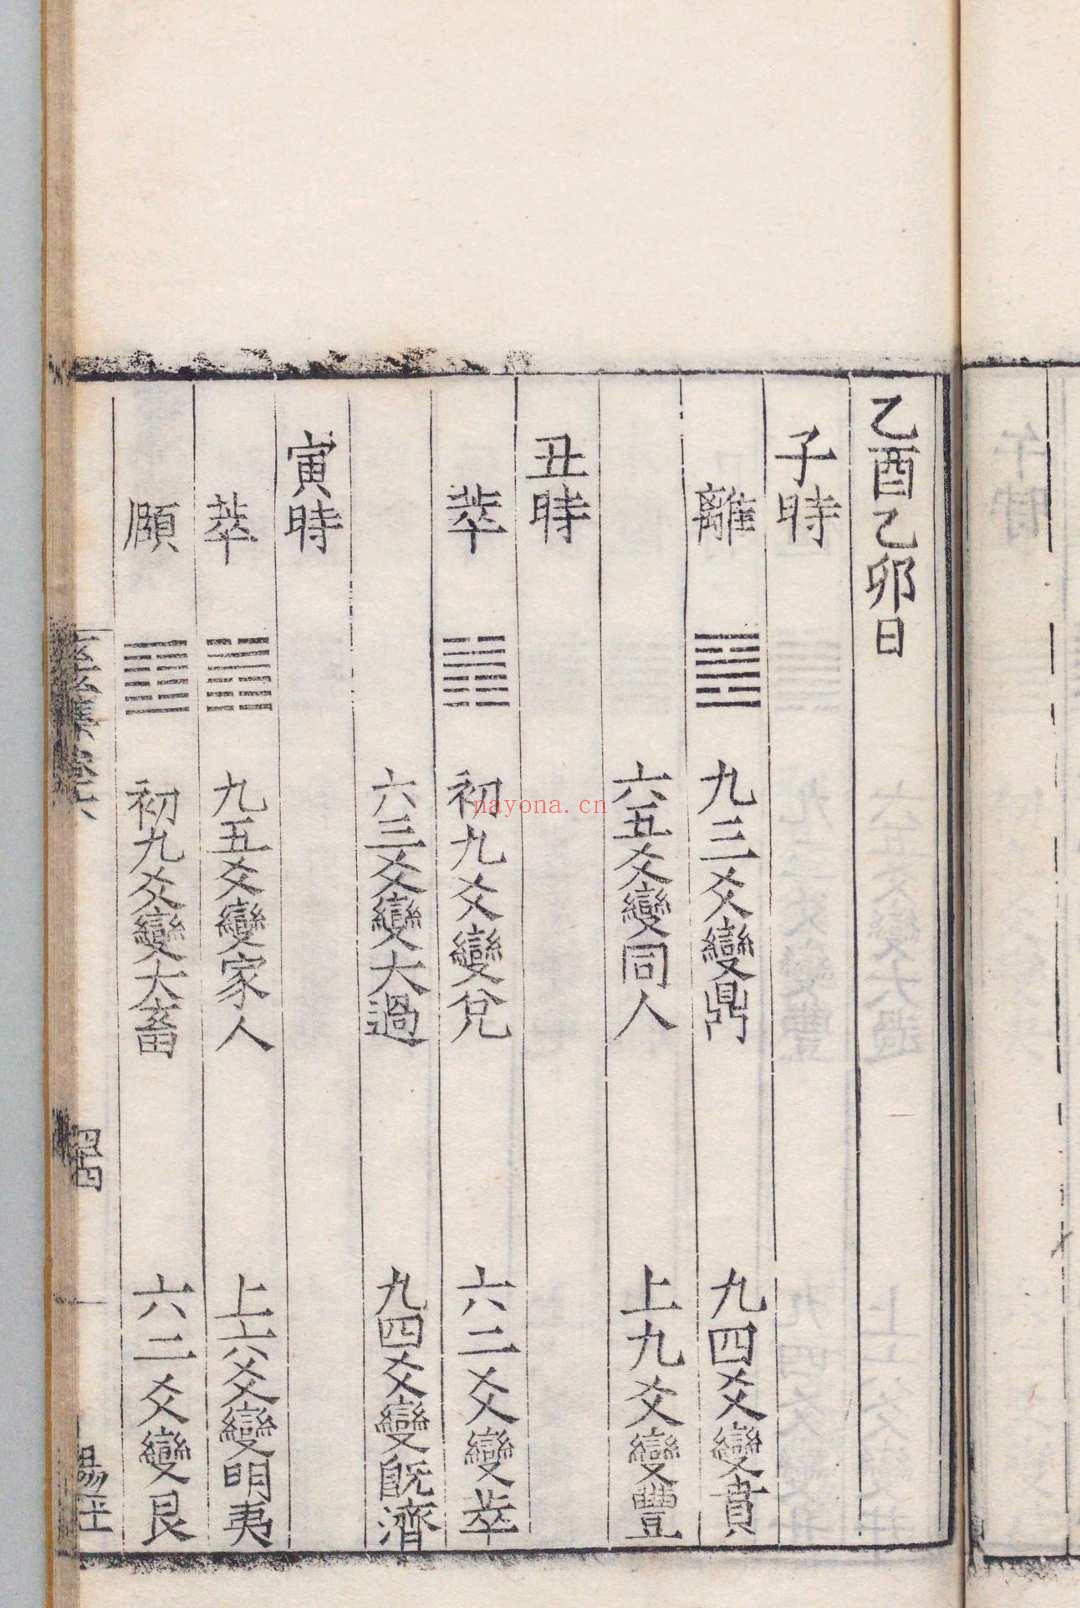 乙酉乙卯日
子時
離 ䷝ 九三爻變鼎 九四爻變賁
六五爻變同人 上九爻變豐
丑時
萃 ䷬ 初九爻變兌 六二爻變萃
六三爻變大過 九四爻變旣濟
寅時
萃 九五爻變家人 上六爻變明夷
頤 初九爻變大畜 六二爻變艮
四
nayona.cn
午時